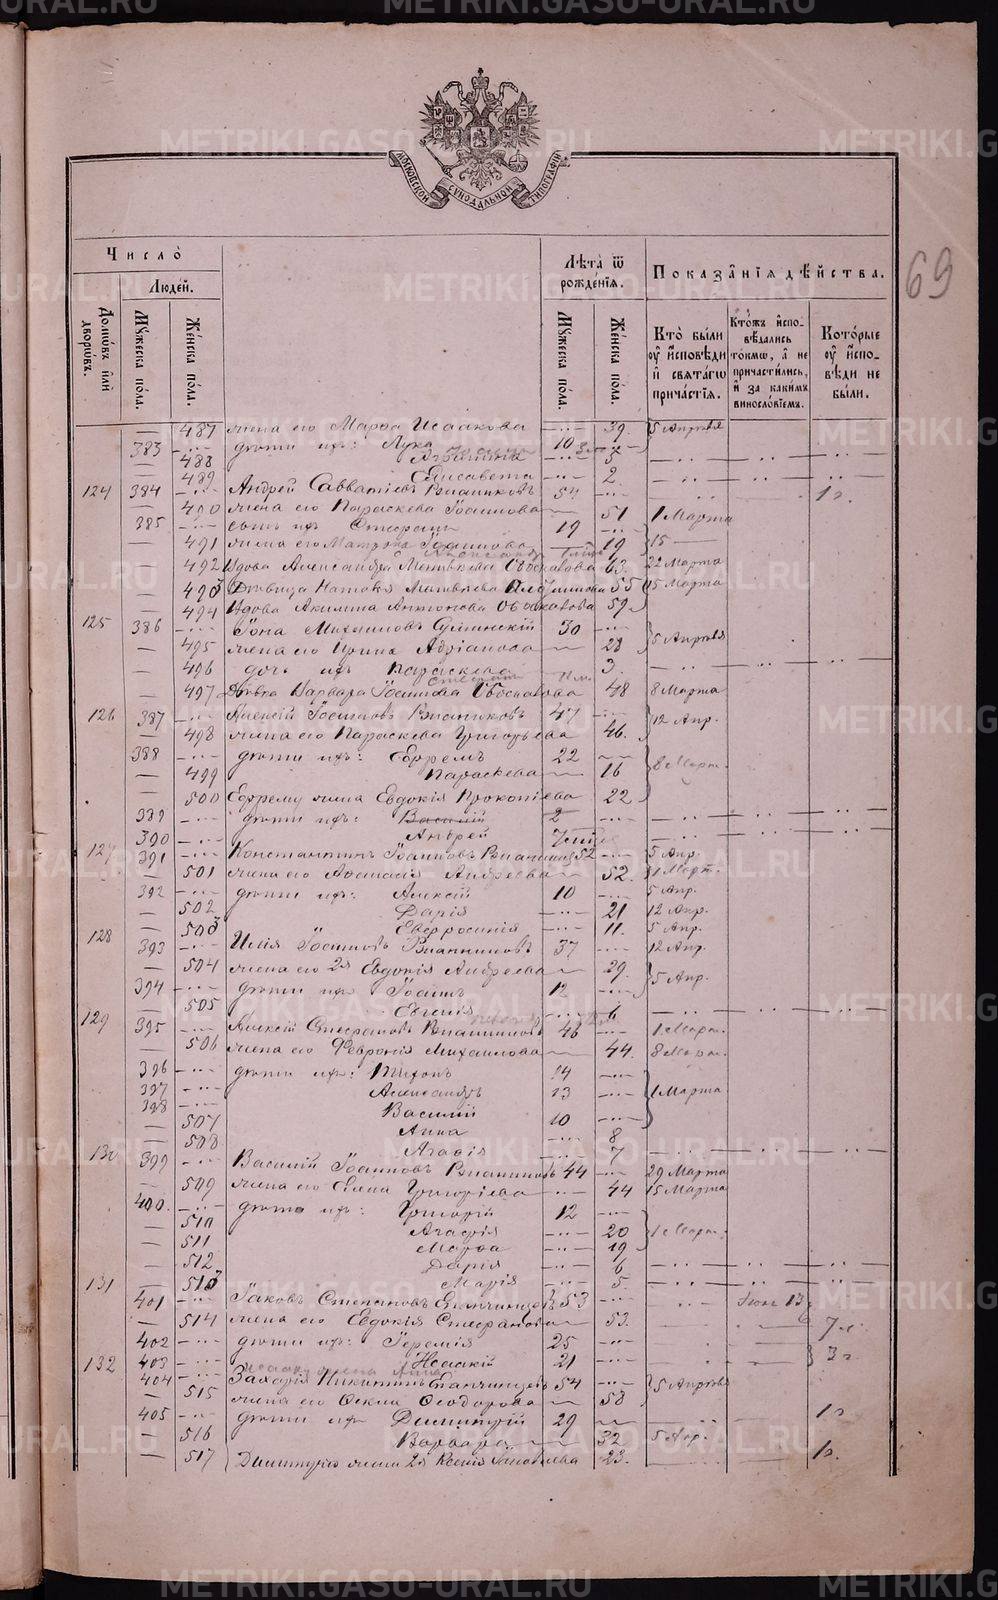 METRIKI.GASO-URAL.RU
МОСКОВСКОЙ СѴНОДАЛЬНОЙ ТИПОГРАФІИ
69
Число̀
Людéй.
Домѡ́въ и҆лѝ дворѡ́въ.
Мꙋ́жеска по́ла.
Же́нска по́ла.
Лѣ́та ѿ рождéнїѧ.
Мꙋ́жеска по́ла.
Же́нска по́ла.
Показа̂нїѧ дѣ́йства.
Кто̀ бы́ли оу҆ и҆сповѣди и҆ свѧта́гѡ прича́стїѧ.
Кто́жъ и҆спо-вѣдались то́кмѡ, а҆ не причасти́лись, и҆ за каки́мъ винословіемъ.
Кото́рые оу҆ и҆спо-вѣди не бы́ли.
487 жена его Марѳа Исаакова 39 5 Апрѣля
383 дѣти ихъ: Лука 10
488 5
489 Елисавета 2
124 384 Андрей Савватіевъ 54 1 г.
490 жена его Параскева Іоаннова 51 1 Марта
385 сынъ ихъ Стефанъ 19
491 жена его Матрона Іоаннова 19 15
492 Вдова Александра Матвѣева 63. 22 Марта
493 Дѣвица Наталія Матвѣева 55 15 Марта
494 Вдова Акилина Антонова 59
125 386 Іона Михаиловъ 30
495 жена его Ирина Адріанова 28 5 Апрѣля
496 дочь ихъ Параскева 3.
497 Дѣвка Варвара Іоаннова 48 8 Марта
126 387 Алексій 47
498 жена его Параскева Григорьева 46. 12 Апр.
388 дѣти ихъ: Ефремъ 22
499 Параскева 16 8 Март.
500 Ефрему жена Евдокія Прокопіева 22
389 дѣти ихъ: Василій 2
390 Андрей
127 391 Константинъ Іоанновъ 52 5 Апр.
501 жена его Аѳанасія Андреева 52. 1 Март.
392 дѣти ихъ: Алексій 10 5 Апр.
502 Дарія 21 12 Апр.
503 Евфросинія 11. 5 Апр.
128 393 Илія 37 12 Апр.
504 жена его 2я Евдокія Андреева 29. 5 Апр.
394 дѣти ихъ Іоаннъ 12
505 Евгенія 6
129 395 Алексій Стефановъ 48 1 Март.
506 жена его Февронія Михаилова 44. 8 Март.
396 дѣти ихъ: Тихонъ 14
397 Александръ 13 1 Марта
398 Василій 10
507 Анна 8
508 Агафія 7
130 399 Василій Іоанновъ 44 29 Марта
509 жена его Елена Григоріева 44 15 Марта
400. дѣти ихъ: Григорій 12
510 Агафія 20 1 Март.
511 Марѳа 19
512 Дарія 6
513 Марія 5.
131 401 Іаковъ Степановъ 53 13
514 жена его Евдокія Стефанова 53. 7 г.
402 дѣти ихъ: Іеремія 25
403 Исаакій 21 3 г
132 404 Захарія Никитинъ 54 5 Апрѣля
515 жена его Ѳекла Ѳеодорова 58
405 дѣти ихъ Димитрій 29 1 г
516 Варвара 32 5 Апр.
517 Димитрію жена 2я Ксенія 23. 1 г.